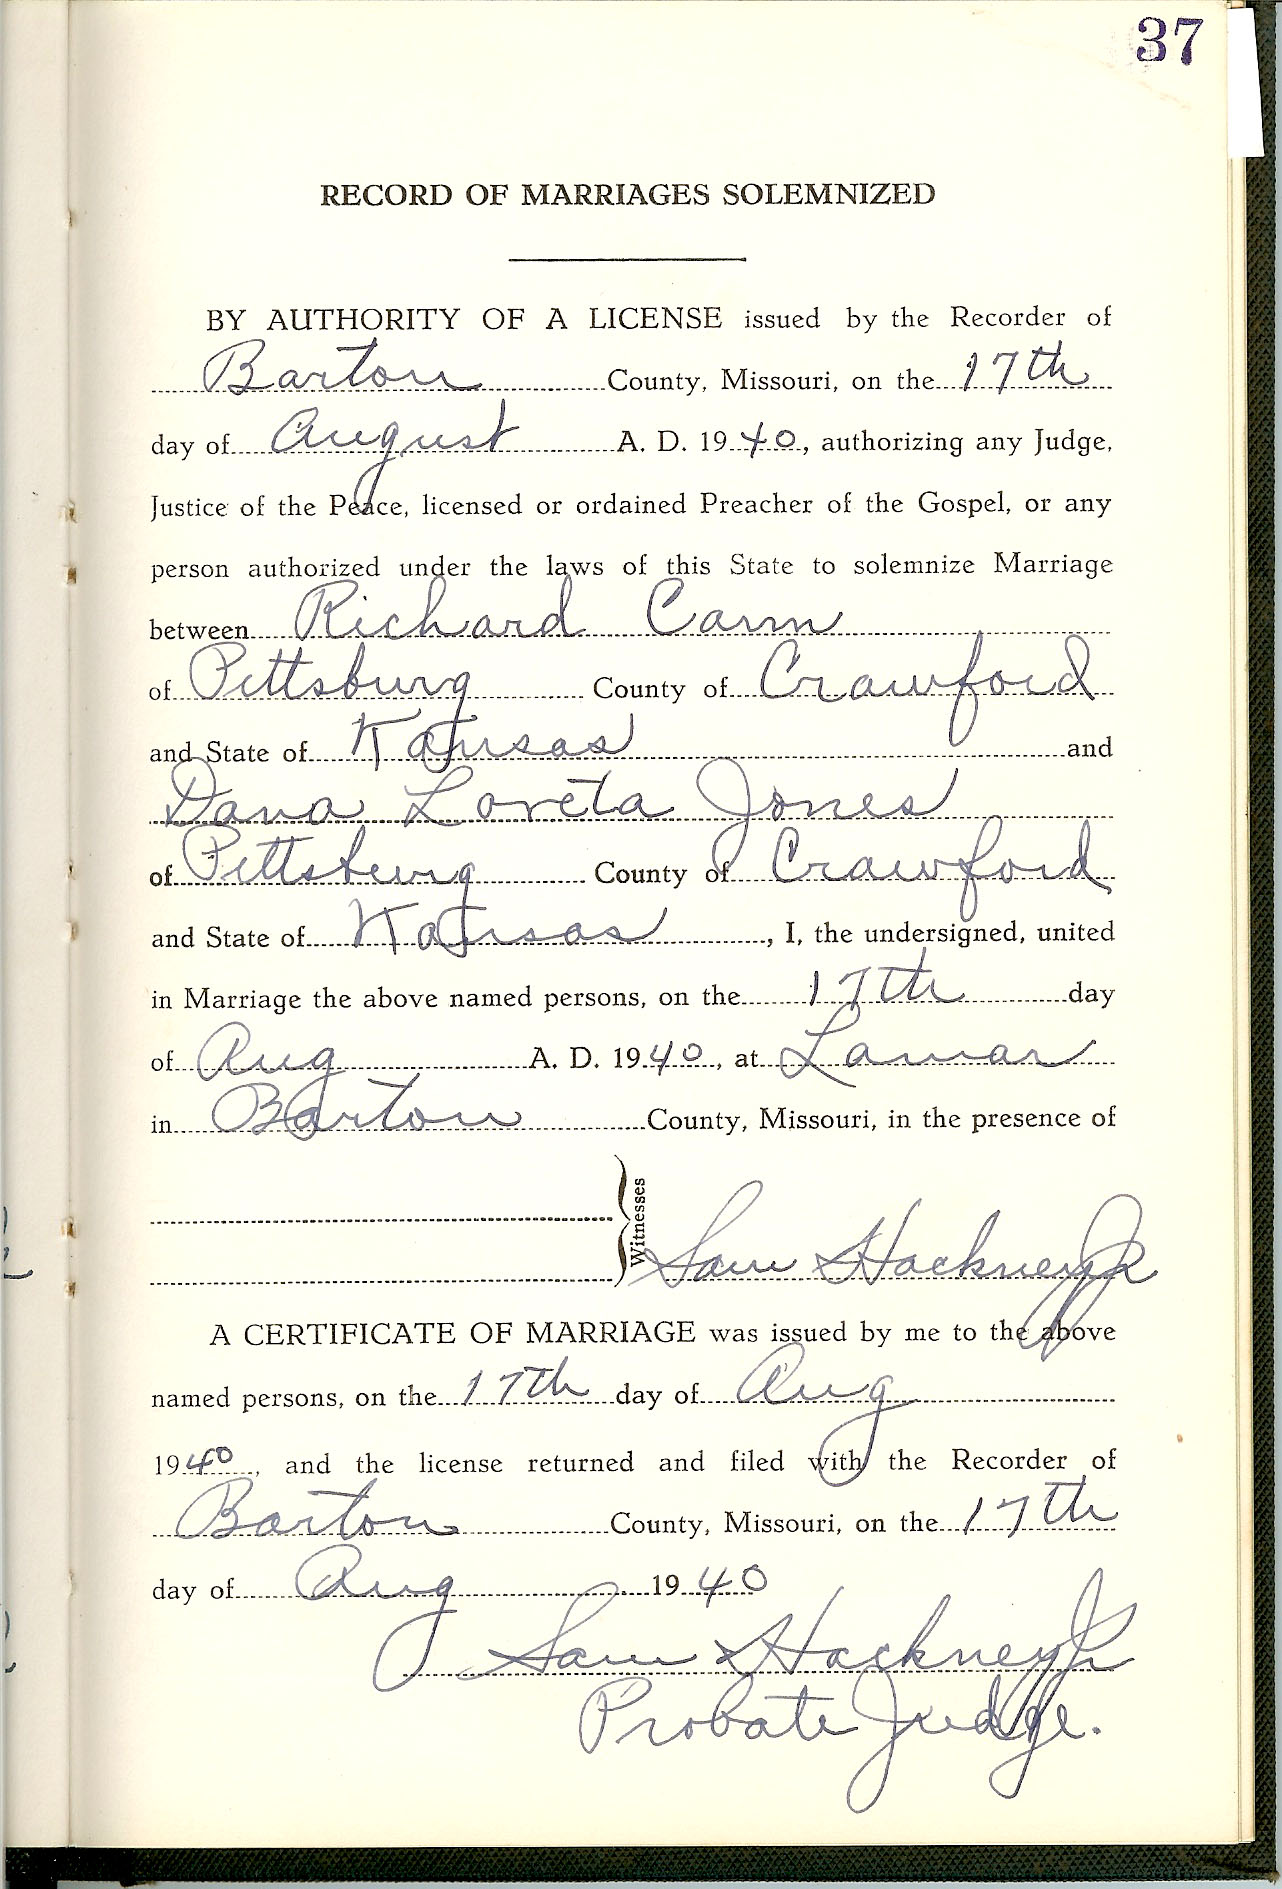 37
RECORD OF MARRIAGES SOLEMNIZED
BY AUTHORITY OF A LICENSE issued by the Recorder of
Barton County, Missouri, on the 17th
day of August A. D. 1940, authorizing any Judge,
Justice of the Peace, licensed or ordained Preacher of the Gospel, or any
person authorized under the laws of this State to solemnize Marriage
between Richard Cann
of Pittsburg County of Crawford
and State of Kansas and
Dana Loreta Jones
of Pittsburg County of Crawford
and State of Kansas, I, the undersigned, united
in Marriage the above named persons, on the 17th day
of Aug A. D. 1940, at Lamar
in Barton County, Missouri, in the presence of
Witnesses
Sam Hackney Jr
A CERTIFICATE OF MARRIAGE was issued by me to the above
named persons, on the 17th day of Aug
1940, and the license returned and filed with the Recorder of
Barton County, Missouri, on the 17th
day of Aug 1940
Sam Hackney Jr
Probate Judge.